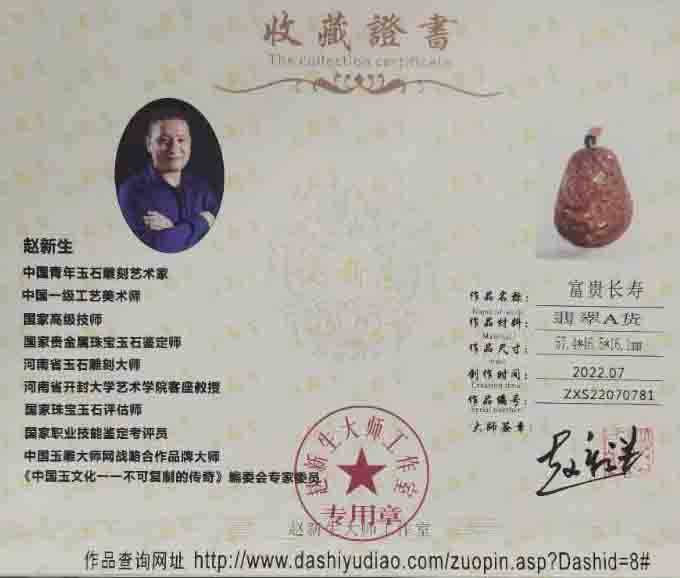 收藏證書
The collection certificate
赵新生
中国青年玉石雕刻艺术家
中国一级工艺美术师
国家高级技师
国家贵金属珠宝玉石鉴定师
河南省玉石雕刻大师
河南省开封大学艺术学院客座教授
国家珠宝玉石评估师
国家职业技能鉴定考评员
中国玉雕大师网战略合作品牌大师
《中国玉文化一一不可复制的传奇》编委会专家委员
作品名称: 富贵长寿
作品材料: 翡翠A货
作品尺寸:
创作时间: 2022.07
Creation time
作品编号: ZXS22070781
Serial number
大师签章:
赵新生大师工作室
专用章
赵新生大师工作室
作品查询网址 http://www.dashiyudiao.com/zuopin.asp?Dashid=8#